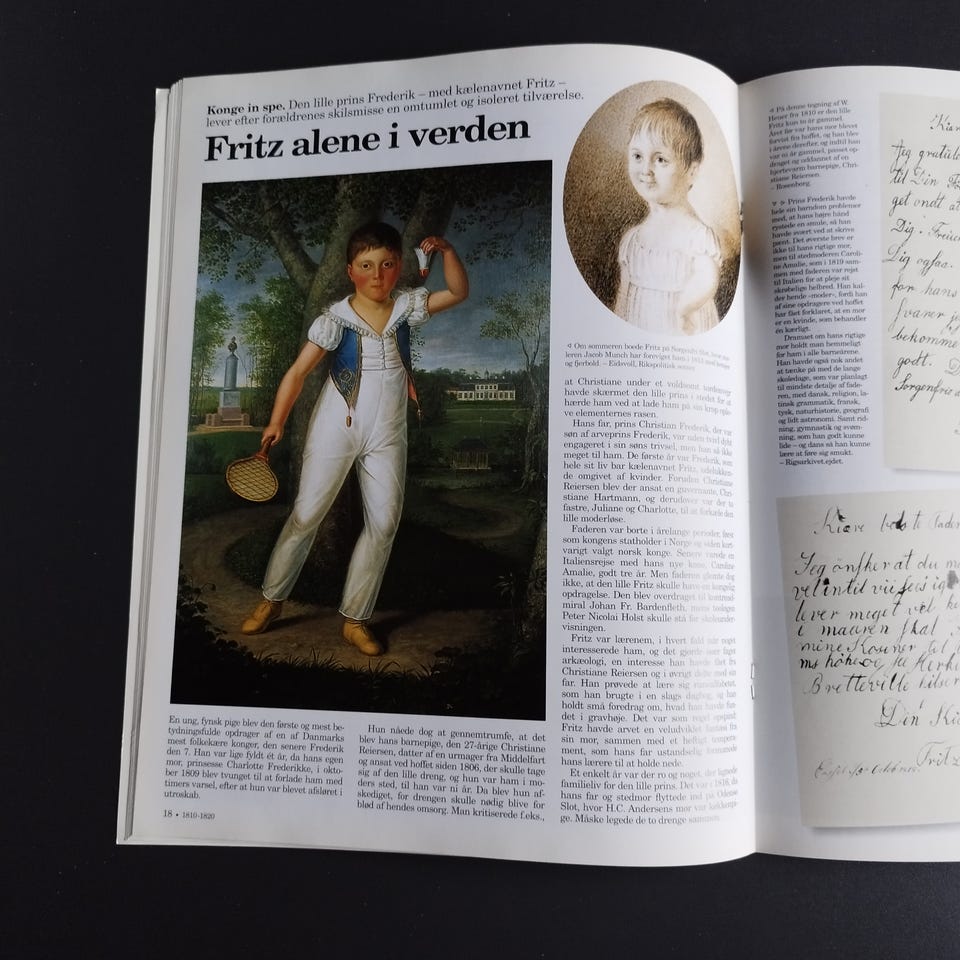 Konge in spe. Den lille prins Frederik – med kælenavnet Fritz –
lever efter forældrenes skilsmisse en omtumlet og isoleret tilværelse.
Fritz alene i verden
En ung, fynsk pige blev den første og mest be-
tydningsfulde opdrager af en af Danmarks
mest folkekære konger, den senere Frederik
den 7. Han var lige fyldt ét år, da hans egen
mor, prinsesse Charlotte Frederikke, i okto-
ber 1809 blev tvunget til at forlade ham med
timers varsel, efter at hun var blevet afsløret i
utroskab.
Hun nåede dog at gennemtrumfe, at det
blev hans barnepige, den 27-årige Christiane
Reiersen, datter af en urmager fra Middelfart
og ansat ved hoffet siden 1806, der skulle tage
sig af den lille dreng, og hun var ham i mo-
ders sted, til han var ni år. Da blev hun af-
skediget, for drengen skulle nødig blive for
blød af hendes omsorg. Man kritiserede f.eks.,
18 • 1810-1820
◃ Om sommeren boede Fritz på Sorgenfri Slot, hvor ma-
leren Jacob Munch har foreviget ham i 1813 med ketsjer
og fjerbold. – Eidsvoll, Rikspolitisk senter
at Christiane under et voldsomt tordenvejr
havde skærmet den lille prins i stedet for at
hærde ham ved at lade ham på sin krop ople-
ve elementernes rasen.
Hans far, prins Christian Frederik, der var
søn af arveprins Frederik, var uden tvivl dybt
engageret i sin søns trivsel, men han så ikke
meget til ham. De første år var Frederik, som
hele sit liv bar kælenavnet Fritz, udelukken-
de omgivet af kvinder. Foruden Christiane
Reiersen blev der ansat en guvernante, Chri-
stiane Hartmann, og derudover var der to
fastre, Juliane og Charlotte, til at forkæle den
lille moderløse.
Faderen var borte i årelange perioder, først
som kongens statholder i Norge og siden kort-
varigt valgt norsk konge. Senere varede en
Italiensrejse med hans nye kone, Caroline
Amalie, godt tre år. Men faderen glemte dog
ikke, at den lille Fritz skulle have en kongelig
opdragelse. Den blev overdraget til kontread-
miral Johan Fr. Bardenfleth, mens teologen
Peter Nicolai Holst skulle stå for skoleunder-
visningen.
Fritz var lærenem, i hvert fald når noget
interesserede ham, og det gjorde især faget
arkæologi, en interesse han havde fået fra
Christiane Reiersen og i øvrigt delte med sin
far. Han prøvede at lære sig runealfabetet,
som han brugte i en slags dagbog, og han
holdt små foredrag om, hvad han havde fun-
det i gravhøje. Det var som regel opspind
Fritz havde arvet en veludviklet fantasi fra
sin mor, sammen med et heftigt tempera-
ment, som hans far ustandselig formanede
hans lærere til at holde nede.
Et enkelt år var der ro og noget, der lignede
familieliv for den lille prins. Det var i 1816, da
hans far og stedmor flyttede ind på Odense
Slot, hvor H.C. Andersens mor var vaskeko-
ne. Måske legede de to drenge sammen.
◃ På denne tegning af W.
Heuer fra 1810 er den lille
Fritz kun to år gammel.
Året før var hans mor blevet
forvist fra hoffet, og han blev
i årene derefter, og indtil han
var ni år gammel, passet op-
draget og uddannet af en
hjertevarm barnepige, Chri-
stiane Reiersen.
– Rosenborg.
▿ ▹ Prins Frederik havde
hele sin barndom problemer
med, at hans højre hånd
rystede en smule, så han
havde svært ved at skrive
pænt. Det øverste brev er
ikke til hans rigtige mor,
men til stedmoderen Caroli-
ne Amalie, som i 1819 sam-
men med faderen var rejst
til Italien for at pleje sit
skrøbelige helbred. Han kal-
der hende »moder«, fordi han
af sine opdragere ved hoffet
har fået forklaret, at en mor
er en kvinde, som behandler
én kærligt.
Dramaet om hans rigtige
mor holdt man hemmeligt
for ham i alle barneårene.
Han havde også nok andet
at tænke på med de lange
skoledage, som var planlagt
til mindste detalje af fade-
ren, med dansk, religion, la-
tinsk grammatik, fransk,
tysk, naturhistorie, geografi
og lidt astronomi. Samt rid-
ning, gymnastik og svøm-
ning, som han godt kunne
lide – og dans så han kunne
lære at føre sig smukt.
– Rigsarkivet.ejdet.
Kiær
Jeg gratule
til Din
get ondt at
Dig.
Dig ogsaa.
for hans
svarer je
bekomme
godt.
Sorgenfrie
Kiære
Jeg önsker at du
vel intil
lever meget vel
i maaren skal
mine Kosiner til
Bretteville hilser
Din
Fritz